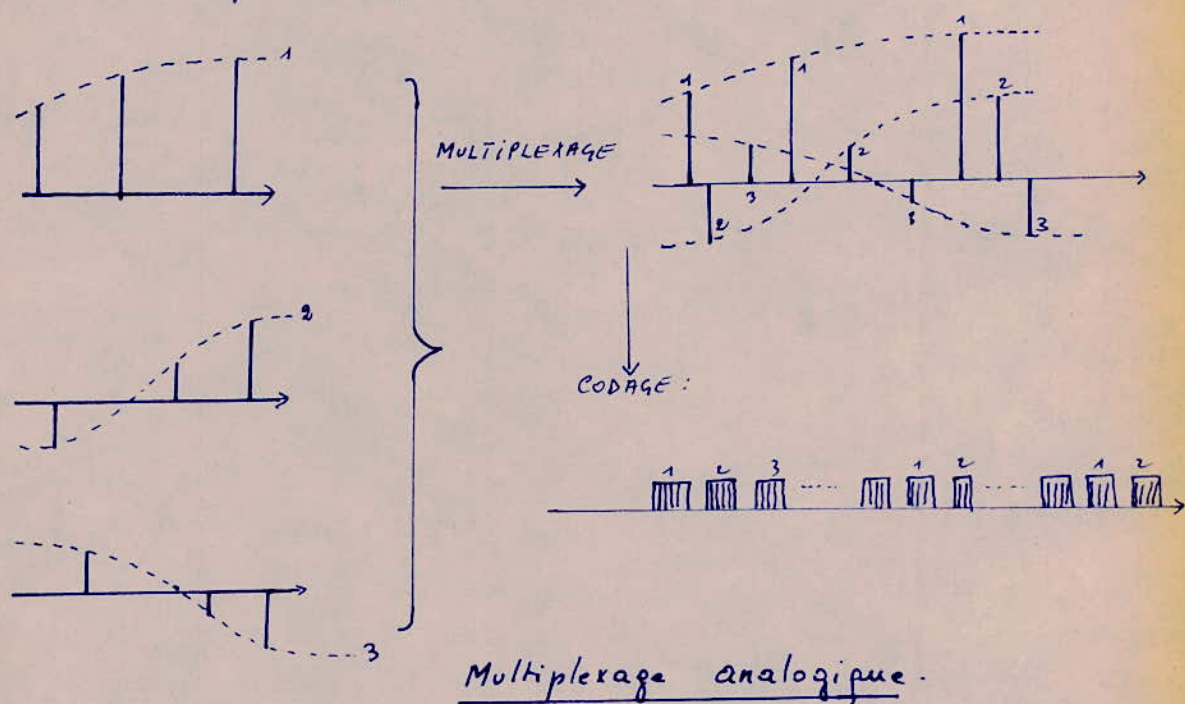 1
MULTIPLEXAGE
1 1 1
2 2 2
3 3 3
2
CODAGE :
1 2 3 ..... 1 2 ..... 1 2
3
Multiplexage analogique.